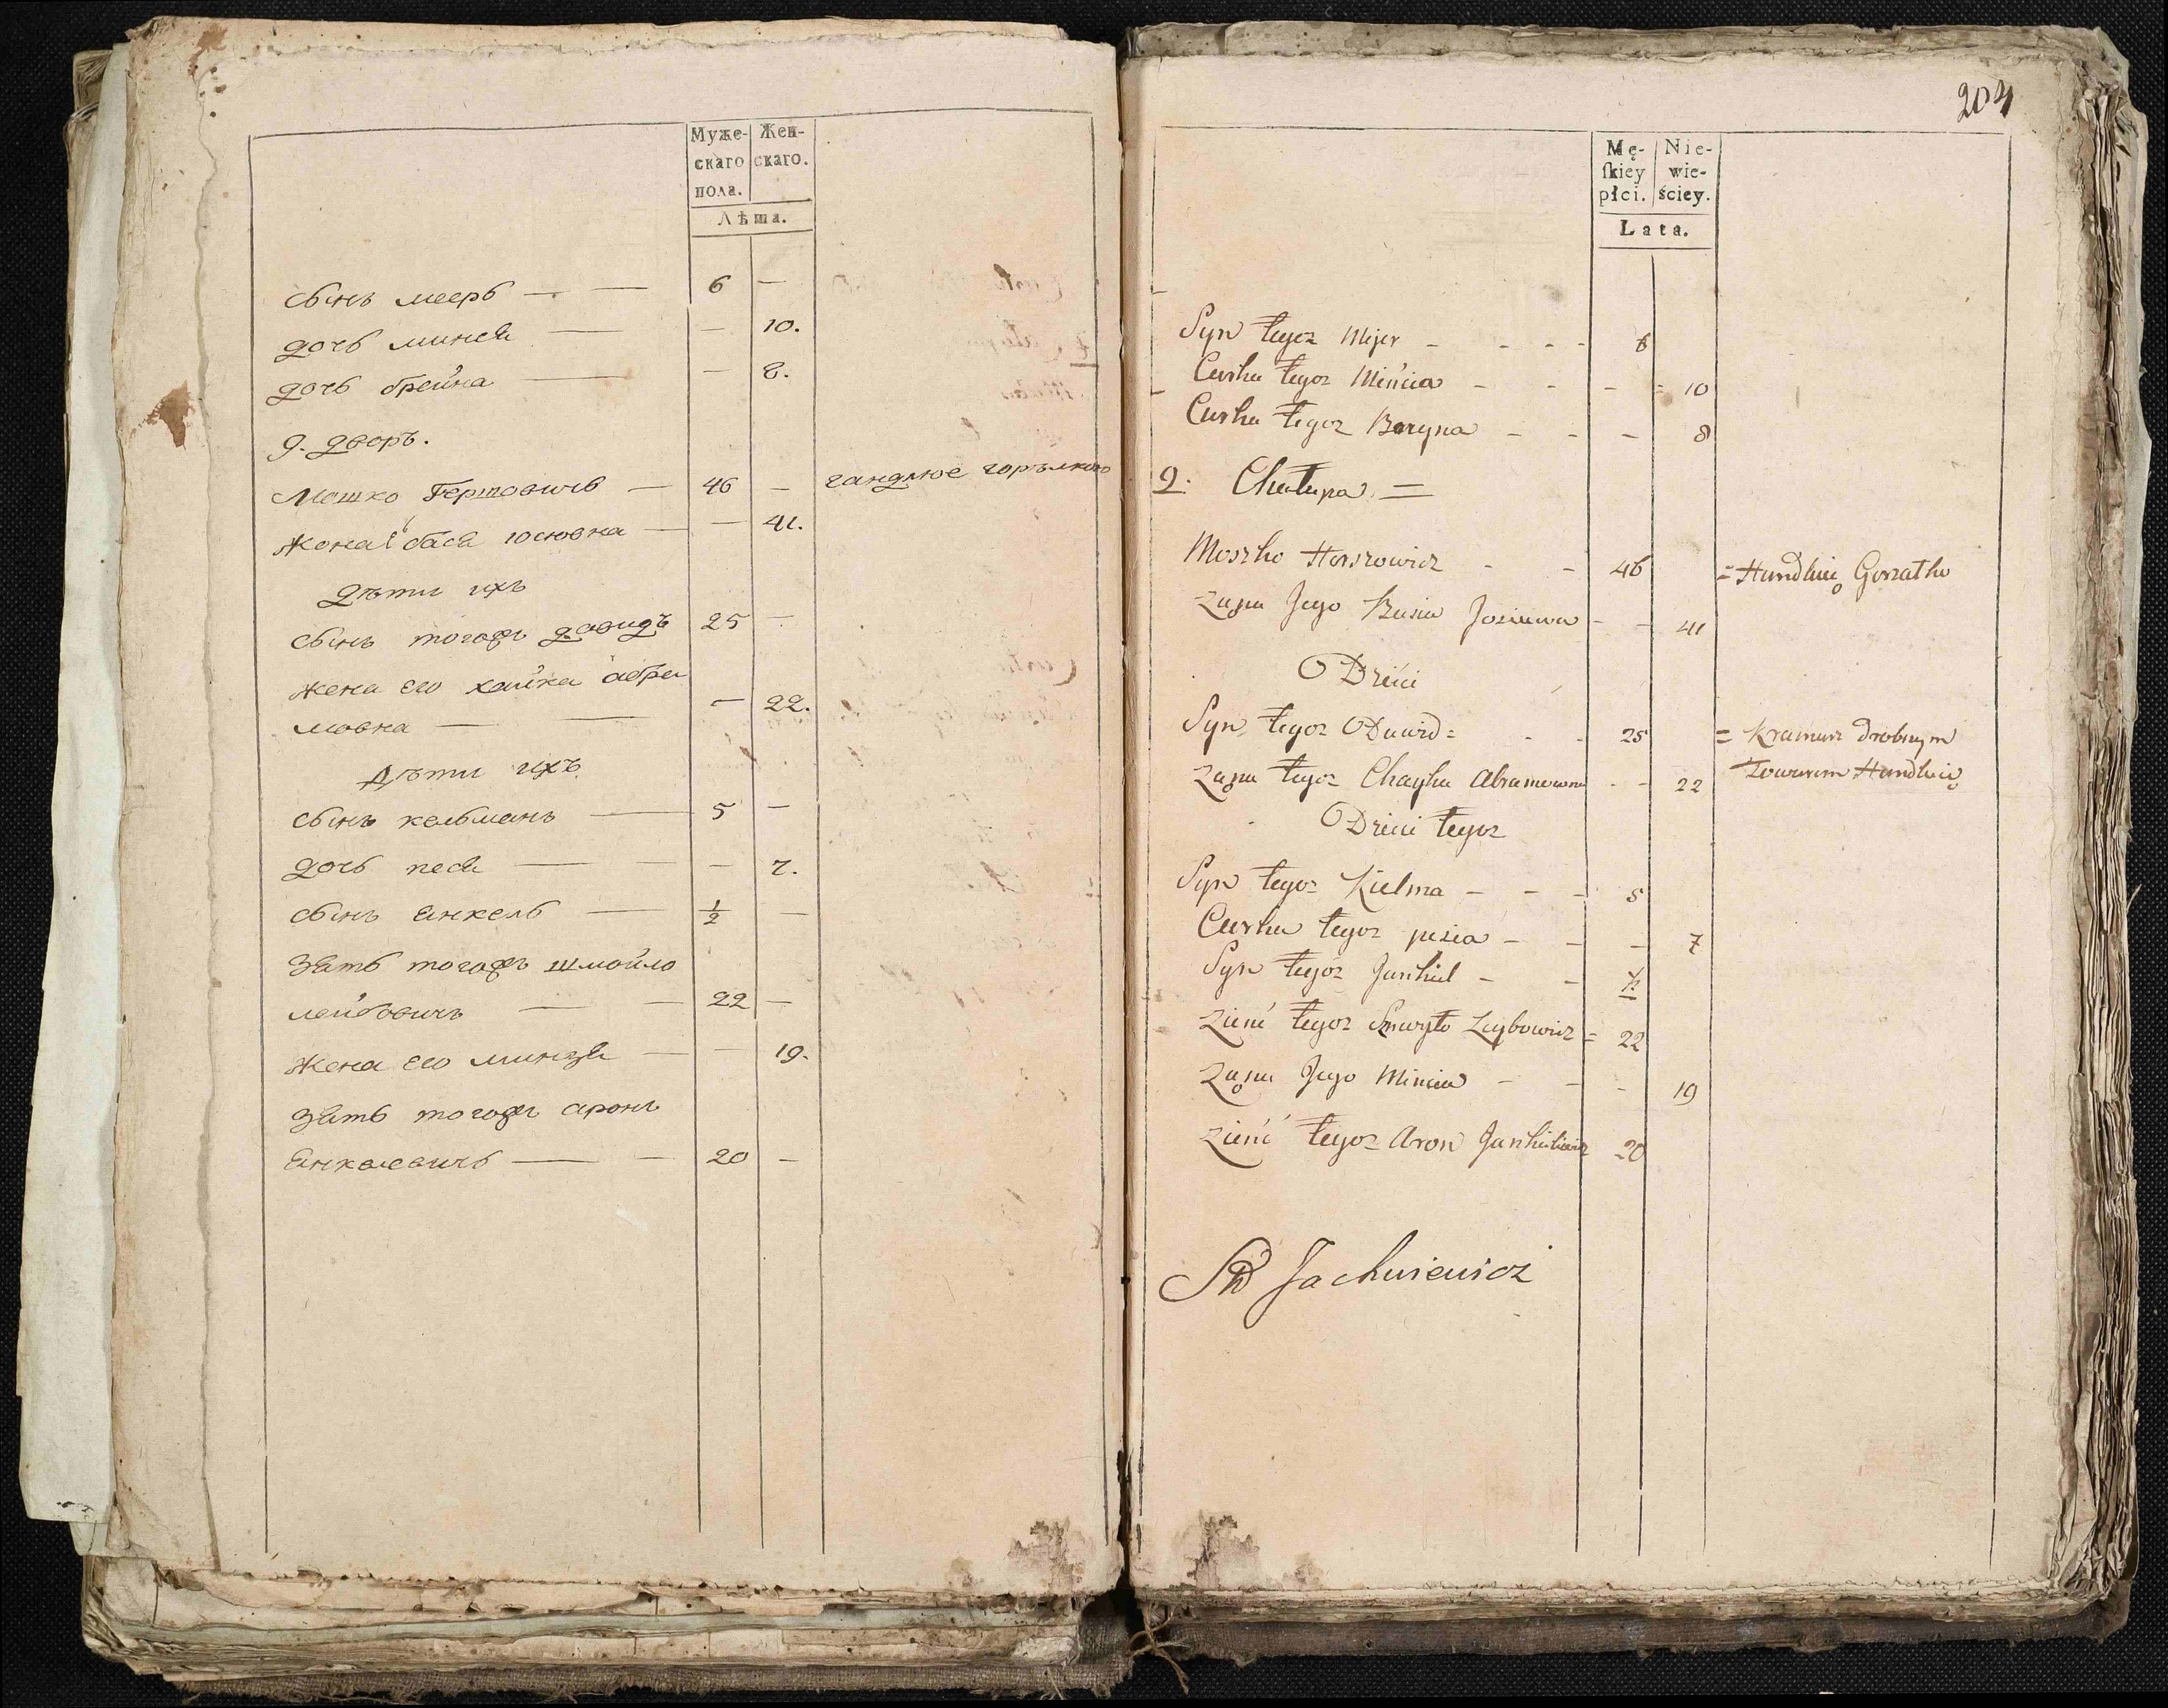 Муже-
скаго
пола.
Жен-
скаго.
Лѣта.
сынъ мееръ — — 6 —
дочь минся — — 10.
дочь брейна — — 8.
9. дворъ.
Мошко Гершовичъ — 46 — гандлюе горѣлкою
Жона Бася юсювна — — 41.
дѣти ихъ
сынъ тогожъ давидъ 25 —
жена его хайка абра
мовна — — — 22.
дѣти ихъ
сынъ кельманъ — 5 —
дочь песя — — — 7.
сынъ Янкель — 1/2 —
Зять тогожъ шмойло
лейбовичъ — — 22 —
жена его минзя — — 19.
Зять тогожъ аронъ
Янкелевичъ — — 20 —
204
Mę-
ſkiey
płci.
Nie-
wie-
ściey.
Lata.
Syn tegoz Mejer - - - - 6
Curka tegoz Mińcia - - - = 10
Curka tegoz Breyna - - - 8
9. Chałupa =
Moszko Herszowicz - - 46 = Handluię Gorzałko
Zona Jego Basia Josiowna - - 41
Dzieci
Syn tegoz Dawid = - - 25 = Kramarz drobnym
Zona tegoz Chayka Abramowna - - 22 Towarem Handluię
Dzieci tegoz
Syn tegoz Kielma - - - 5
Curka tegoz pesia - - - 7
Syn tegoz Jankiel - - ½
Zienć tegoz Szmoyło Leybowicz = 22
Zona Jego Mincia - - - 19
Zienć tegoz Aron Jankielewicz 20
Jachniewicz